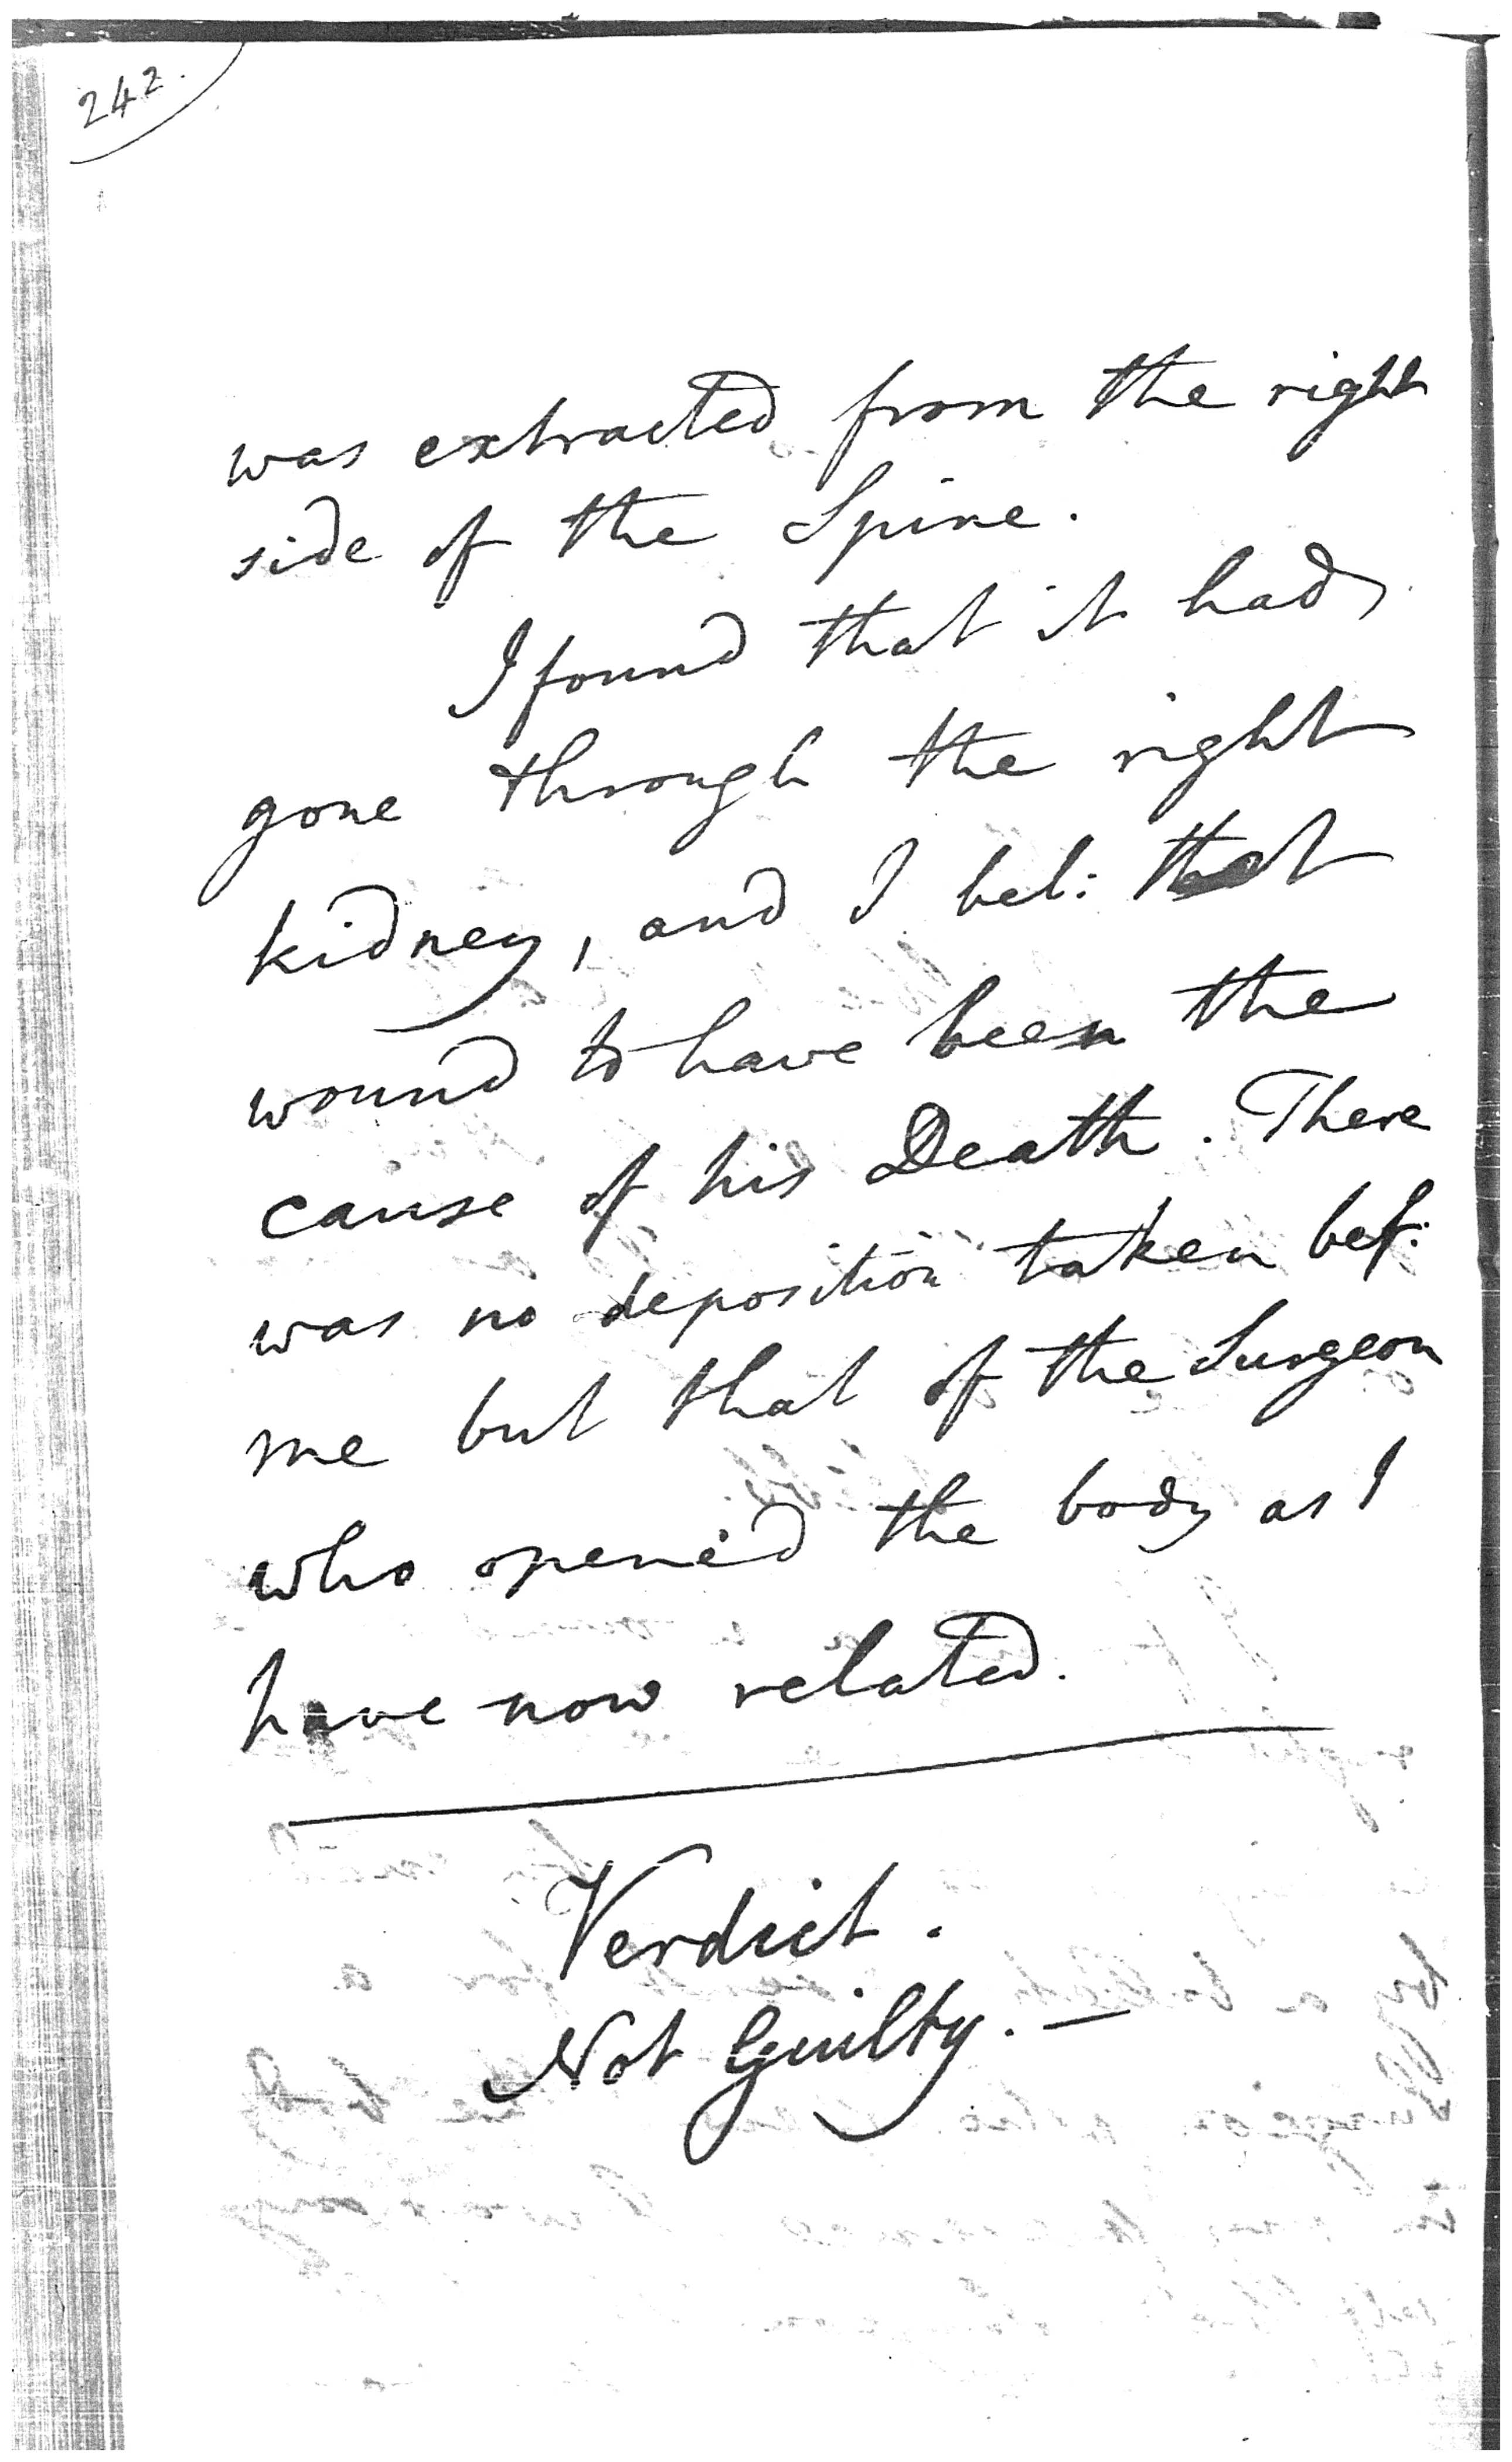 242.
was extracted from the right
side of the Spine.
I found that it had
gone through the right
kidney, and I bel: that
wound to have been the
cause of his Death. There
was no deposition taken bef:
me but that of the Surgeon
who opened the body as I
have now related.
Verdict.
Not Guilty. —